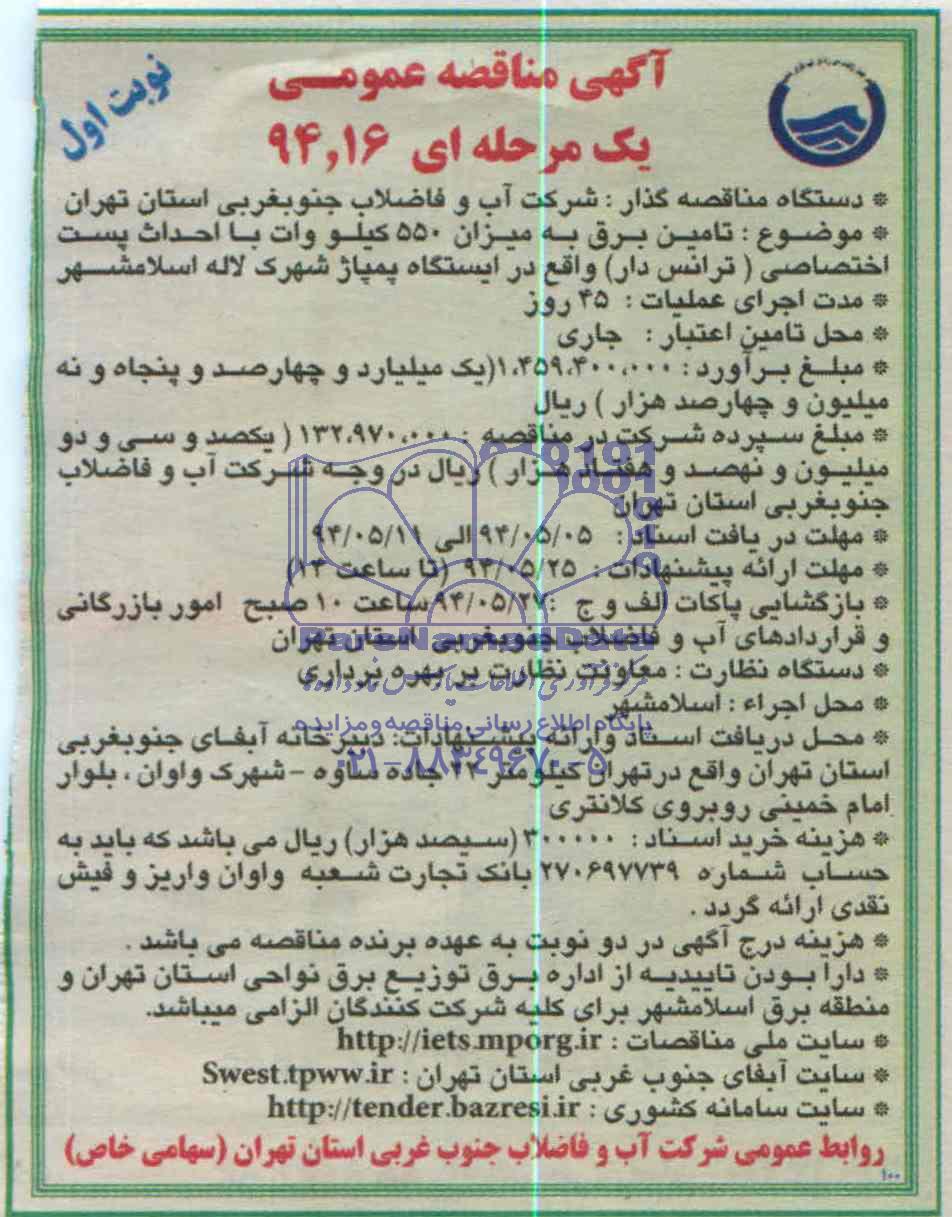 نوبت اول
آگهی مناقصه عمومی
یک مرحله ای ۹۴,۱۶
* دستگاه مناقصه گذار : شرکت آب و فاضلاب جنوبغربی استان تهران
* موضوع : تامین برق به میزان ۵۵۰ کیلو وات با احداث پست
اختصاصی ( ترانس دار) واقع در ایستگاه پمپاژ شهرک لاله اسلامشهر
* مدت اجرای عملیات : ۴۵ روز
* محل تامین اعتبار : جاری
* مبلغ برآورد : ۱،۴۵۹،۴۰۰،۰۰۰(یک میلیارد و چهارصد و پنجاه و نه
میلیون و چهارصد هزار ) ریال
* مبلغ سپرده شرکت در مناقصه : ۱۳۲،۹۷۰،۰۰۰ ( یکصد و سی و دو
میلیون و نهصد و هفتاد هزار ) ریال در وجه شرکت آب و فاضلاب
جنوبغربی استان تهران
* مهلت در یافت اسناد : ۹۴/۰۵/۰۵ الی ۹۴/۰۵/۱۱
* مهلت ارائه پیشنهادات : ۹۴/۰۵/۲۵ (تا ساعت ۱۴)
* بازگشایی پاکات الف و ج :۹۴/۰۵/۲۷ ساعت ۱۰ صبح امور بازرگانی
و قراردادهای آب و فاضلاب جنوبغربی استان تهران
ParsNamadData
* دستگاه نظارت : معاونت نظارت بر بهره برداری
مرکز فرآوری اطلاعات پارس نماد داده
* محل اجراء : اسلامشهر
پایگاه اطلاع رسانی مناقصه و مزایده
* محل دریافت اسناد وارائه پیشنهادات: دبیرخانه آبفای جنوبغربی
استان تهران واقع درتهران کیلومتر ۱۴ جاده ساوه -شهرک واوان ، بلوار
۰۲۱-۸۸۳۴۹۶۷۰-۵
امام خمینی روبروی کلانتری
* هزینه خرید اسناد : ۳۰۰۰۰۰ (سیصد هزار) ریال می باشد که باید به
حساب شماره ۲۷۰۶۹۷۷۳۹ بانک تجارت شعبه واوان واریز و فیش
نقدی ارائه گردد .
* هزینه درج آگهی در دو نوبت به عهده برنده مناقصه می باشد .
* دارا بودن تاییدیه از اداره برق توزیع برق نواحی استان تهران و
منطقه برق اسلامشهر برای کلیه شرکت کنندگان الزامی میباشد.
* سایت ملی مناقصات : http://iets.mporg.ir
* سایت آبفای جنوب غربی استان تهران : Swest.tpww.ir
* سایت سامانه کشوری : http://tender.bazresi.ir
روابط عمومی شرکت آب و فاضلاب جنوب غربی استان تهران (سهامی خاص)
۱۰۰